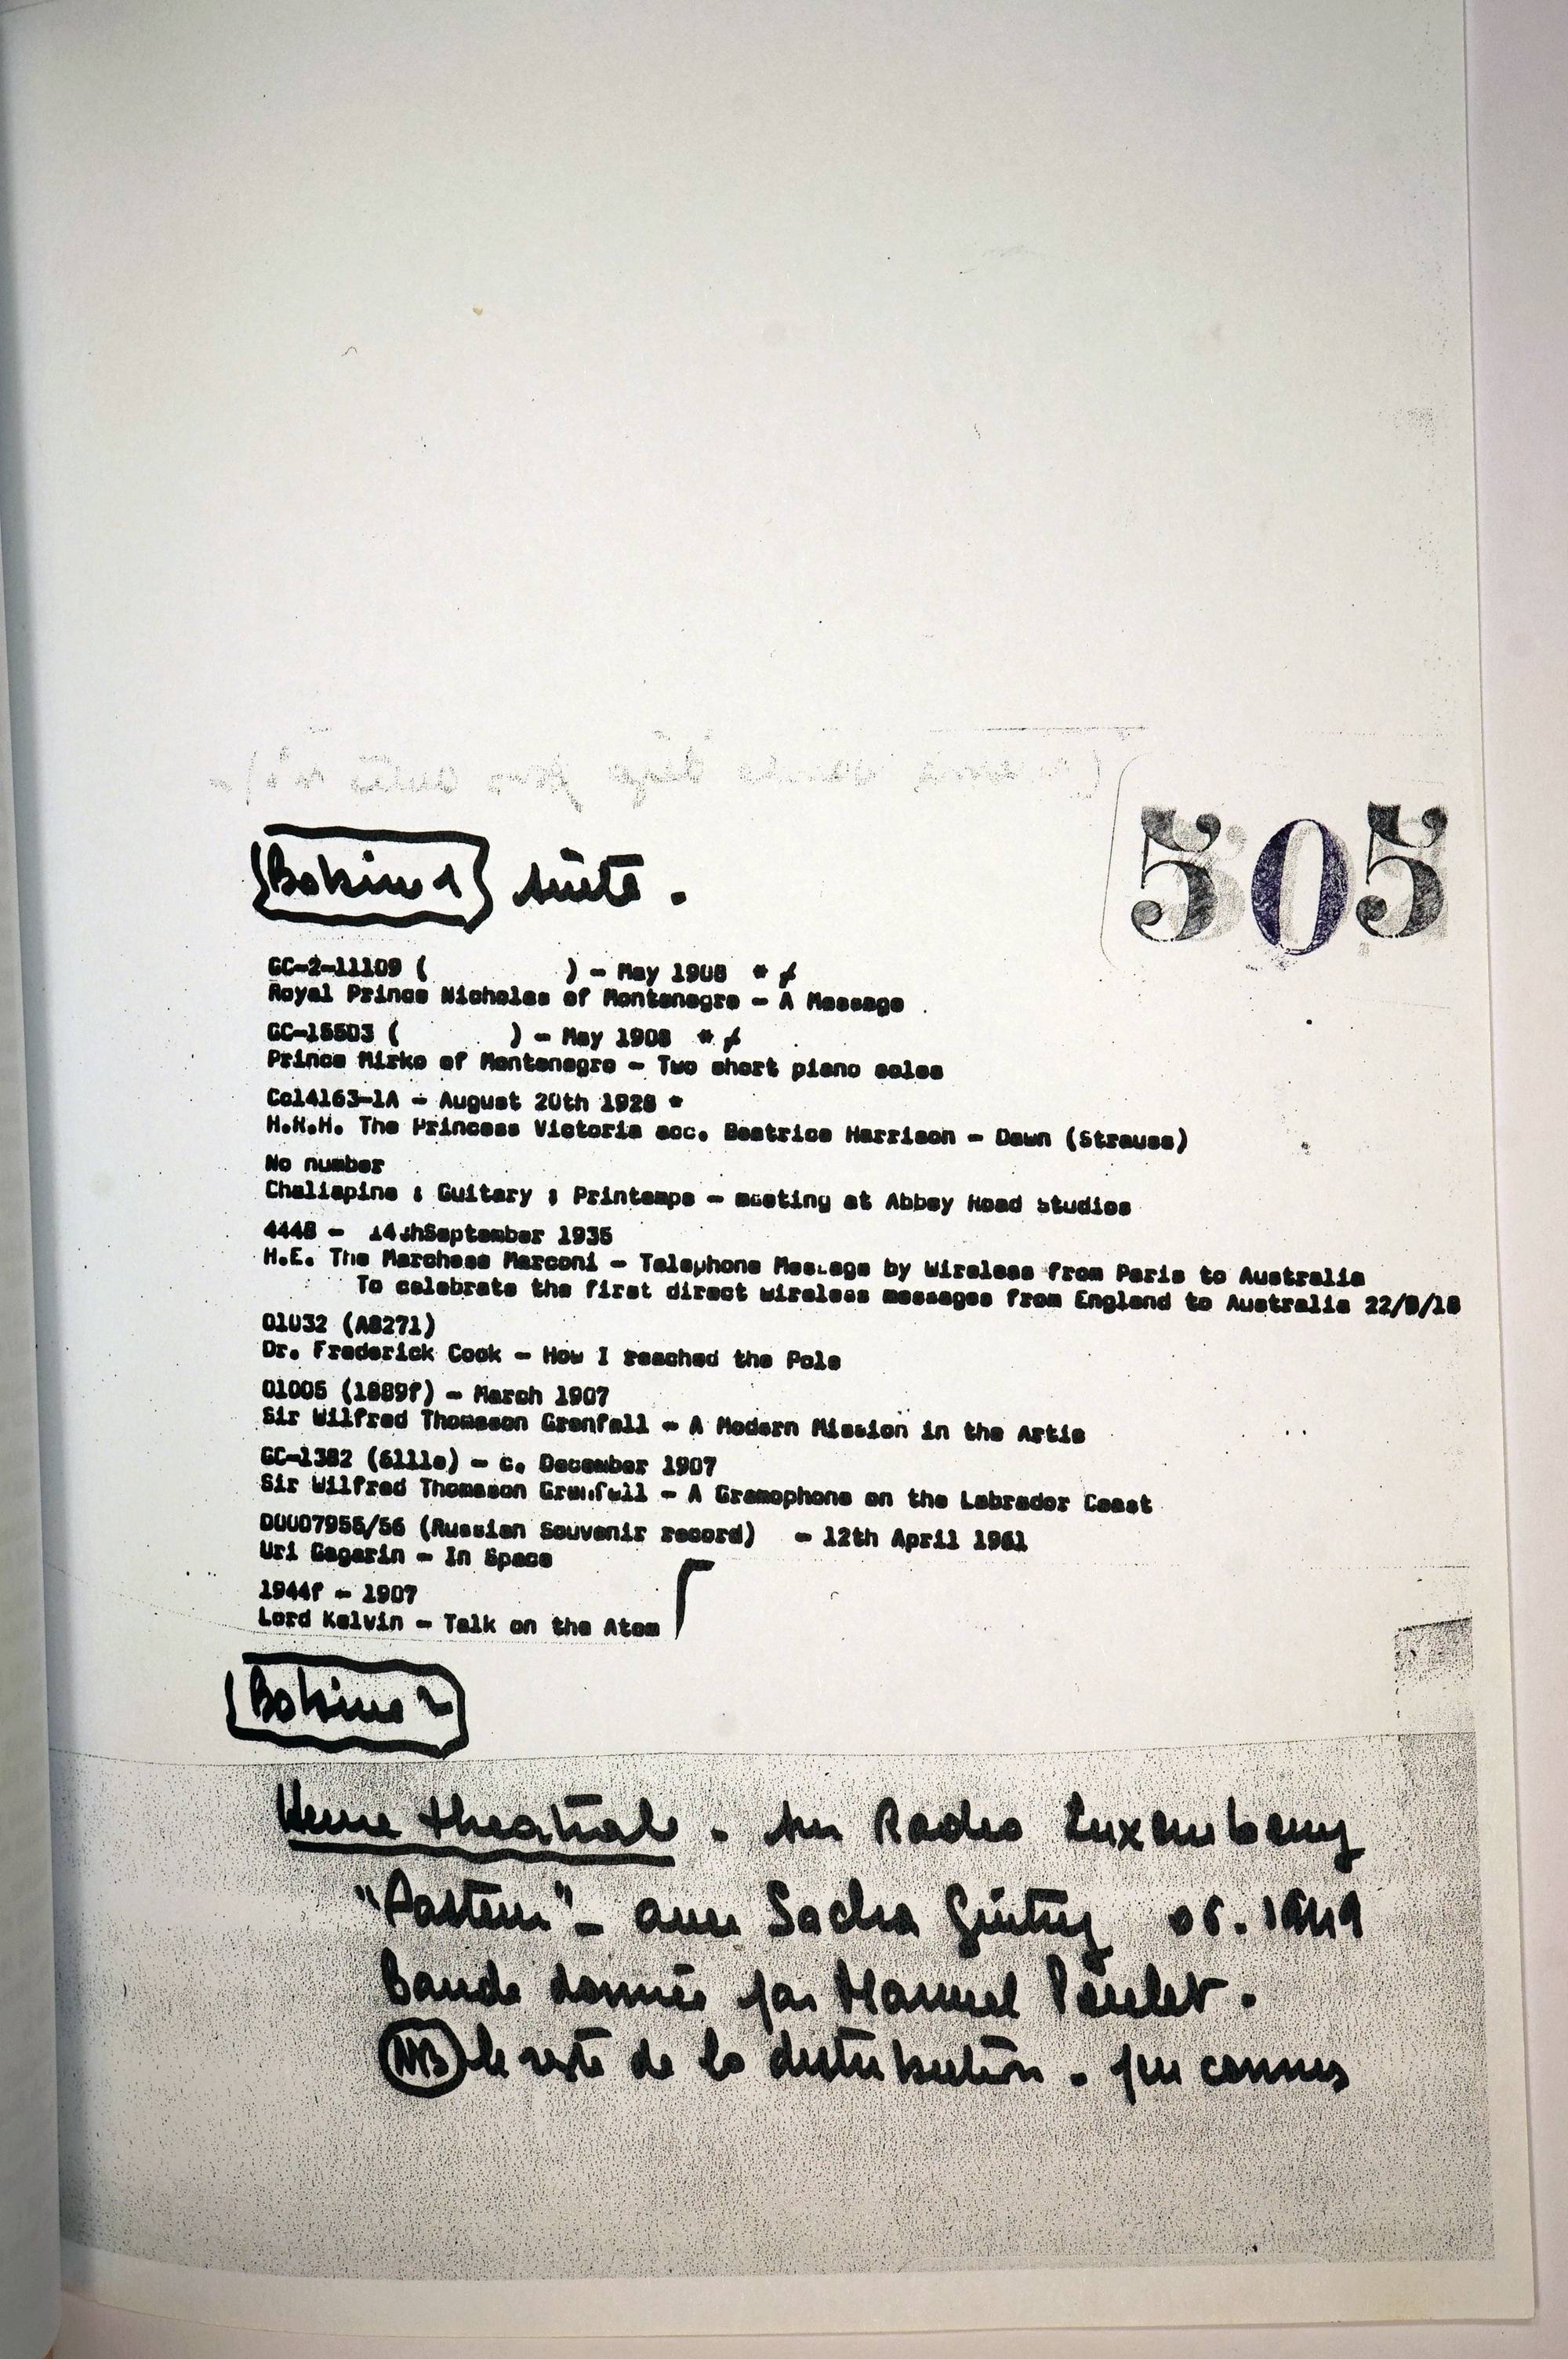 505
Bobine 1 suite.
GC-2-11109 (                ) - May 1908 *
Royal Prince Nicholas of Montenegro - A Message
GC-15503 (             ) - May 1908 *
Prince Mirko of Montenegro - Two short piano soles
Cc14163-1A - August 20th 1928 *
H.R.H. The Princess Victoria acc. Beatrice Harrison - Dawn (Strauss)
No number
Chaliapine ; Guitary ; Printemps - meeting at Abbey Road Studios
4448 - 14thSeptember 1935
H.E. The Marchese Marconi - Telephone Message by Wireless from Paris to Australia
To celebrate the first direct wireless messages from England to Australia 22/9/18
01032 (A8271)
Dr. Frederick Cook - How I reached the Pole
01005 (1889f) - March 1907
Sir Wilfred Thomason Grenfell - A Modern Mission in the Artic
GC-1382 (6111e) - c. December 1907
Sir Wilfred Thomason Grenfell - A Gramophone on the Labrador Coast
D0007955/56 (Russian Souvenir record)   - 12th April 1961
Uri Gagarin - In Space
1944f - 1907
Lord Kelvin - Talk on the Atom
Bobine 2
Heure théatrale. sur Radio Luxembourg
"Pasteur" - avec Sacha Guitry 06. 1949
Bande donnée par Manuel
NB le reste de la distribution. peu connus